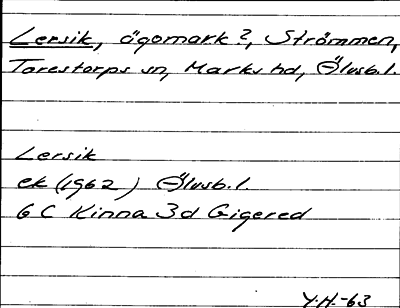 Lersik, ägomark?, Strömmen,
Torestorps sn, Marks hd, Älvsb.l.
Lersik
ek (1962) Älvsb.l.
6 C Kinna 3d Gigered
Y.H.-63